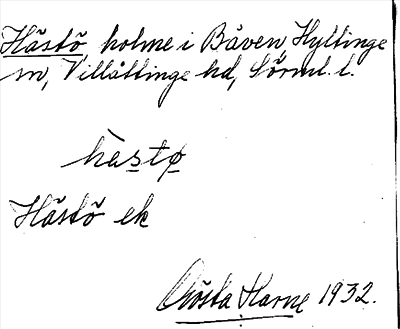 Hästö holme i Båven, Hyltinge
sn, Villåttinge hd, Sörml. l.
hästø
Hästö ek
Gösta Harne 1932.